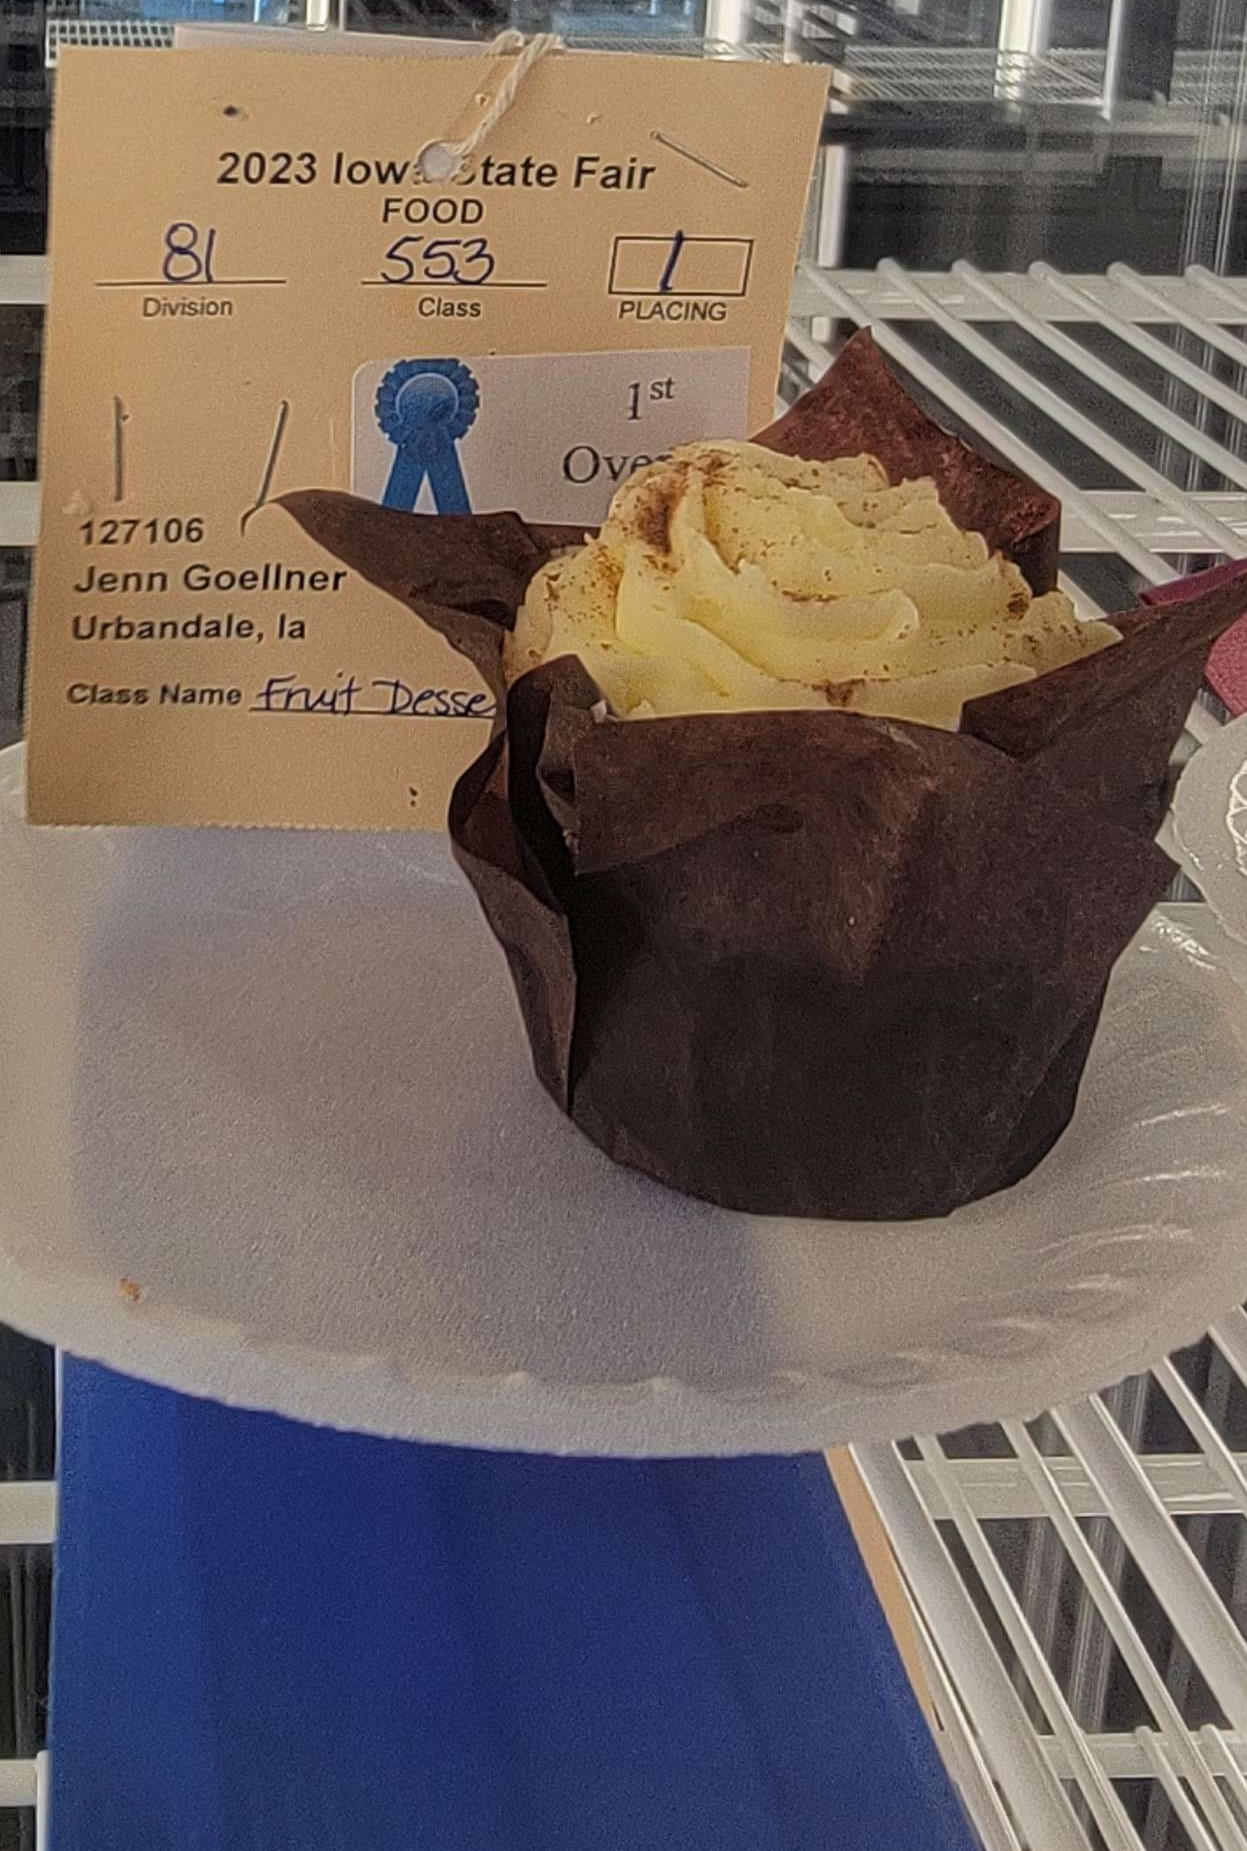 2023 Iowa State Fair
FOOD
81 553 1
Division Class PLACING
1st
Over
127106
Jenn Goellner
Urbandale, Ia
Class Name Fruit Desse